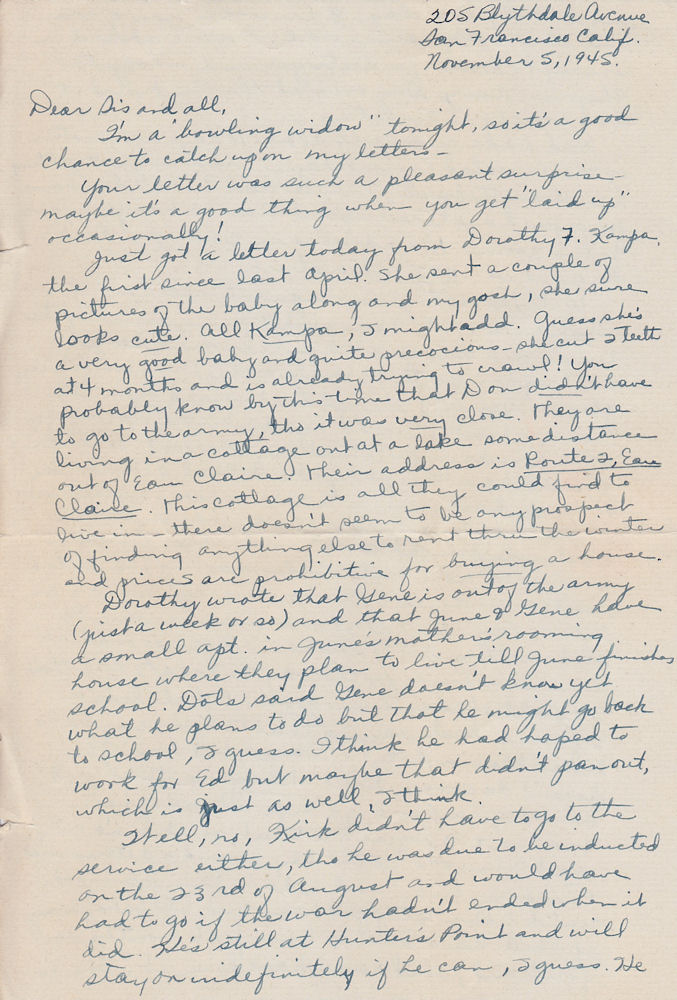 205 Blythdale Avenue
San Francisco Calif.
November 5, 1945.
Dear Sis and all,
I'm a "bowling widow" tonight, so it's a good
chance to catch up on my letters –
Your letter was such a pleasant surprise –
maybe it's a good thing when you get "laid up"
occasionally!
Just got a letter today from Dorothy F. Kampa,
the first since last April. She sent a couple of
pictures of the baby along and my gosh, she sure
looks cute. All Kampa, I might add. Guess she's
a very good baby and quite precocious – she cut 2 teeth
at 4 months and is already trying to crawl! You
probably know by this time that Don didn't have
to go to the army, tho it was very close. They are
living in a cottage out at a lake some distance
out of Eau Claire. Their address is Route 2, Eau
Claire. This cottage is all they could find to
live in – there doesn't seem to be any prospect
of finding anything else to rent thru the winter
and prices are prohibitive for buying a house.
Dorothy wrote that Gene is out of the army
(just a week or so) and that June & Gene have
a small apt. in June's mother's rooming
house where they plan to live till June finishes
school. Dots said Gene doesn't know yet
what he plans to do but that he might go back
to school, I guess. I think he had hoped to
work for Ed but maybe that didn't pan out,
which is just as well, I think.
Well, no, Kirk didn't have to go to the
service either, tho he was due to be inducted
on the 23rd of August and would have
had to go if the war hadn't ended when it
did. He's still at Hunter's Point and will
stay on indefinitely if he can, I guess. He